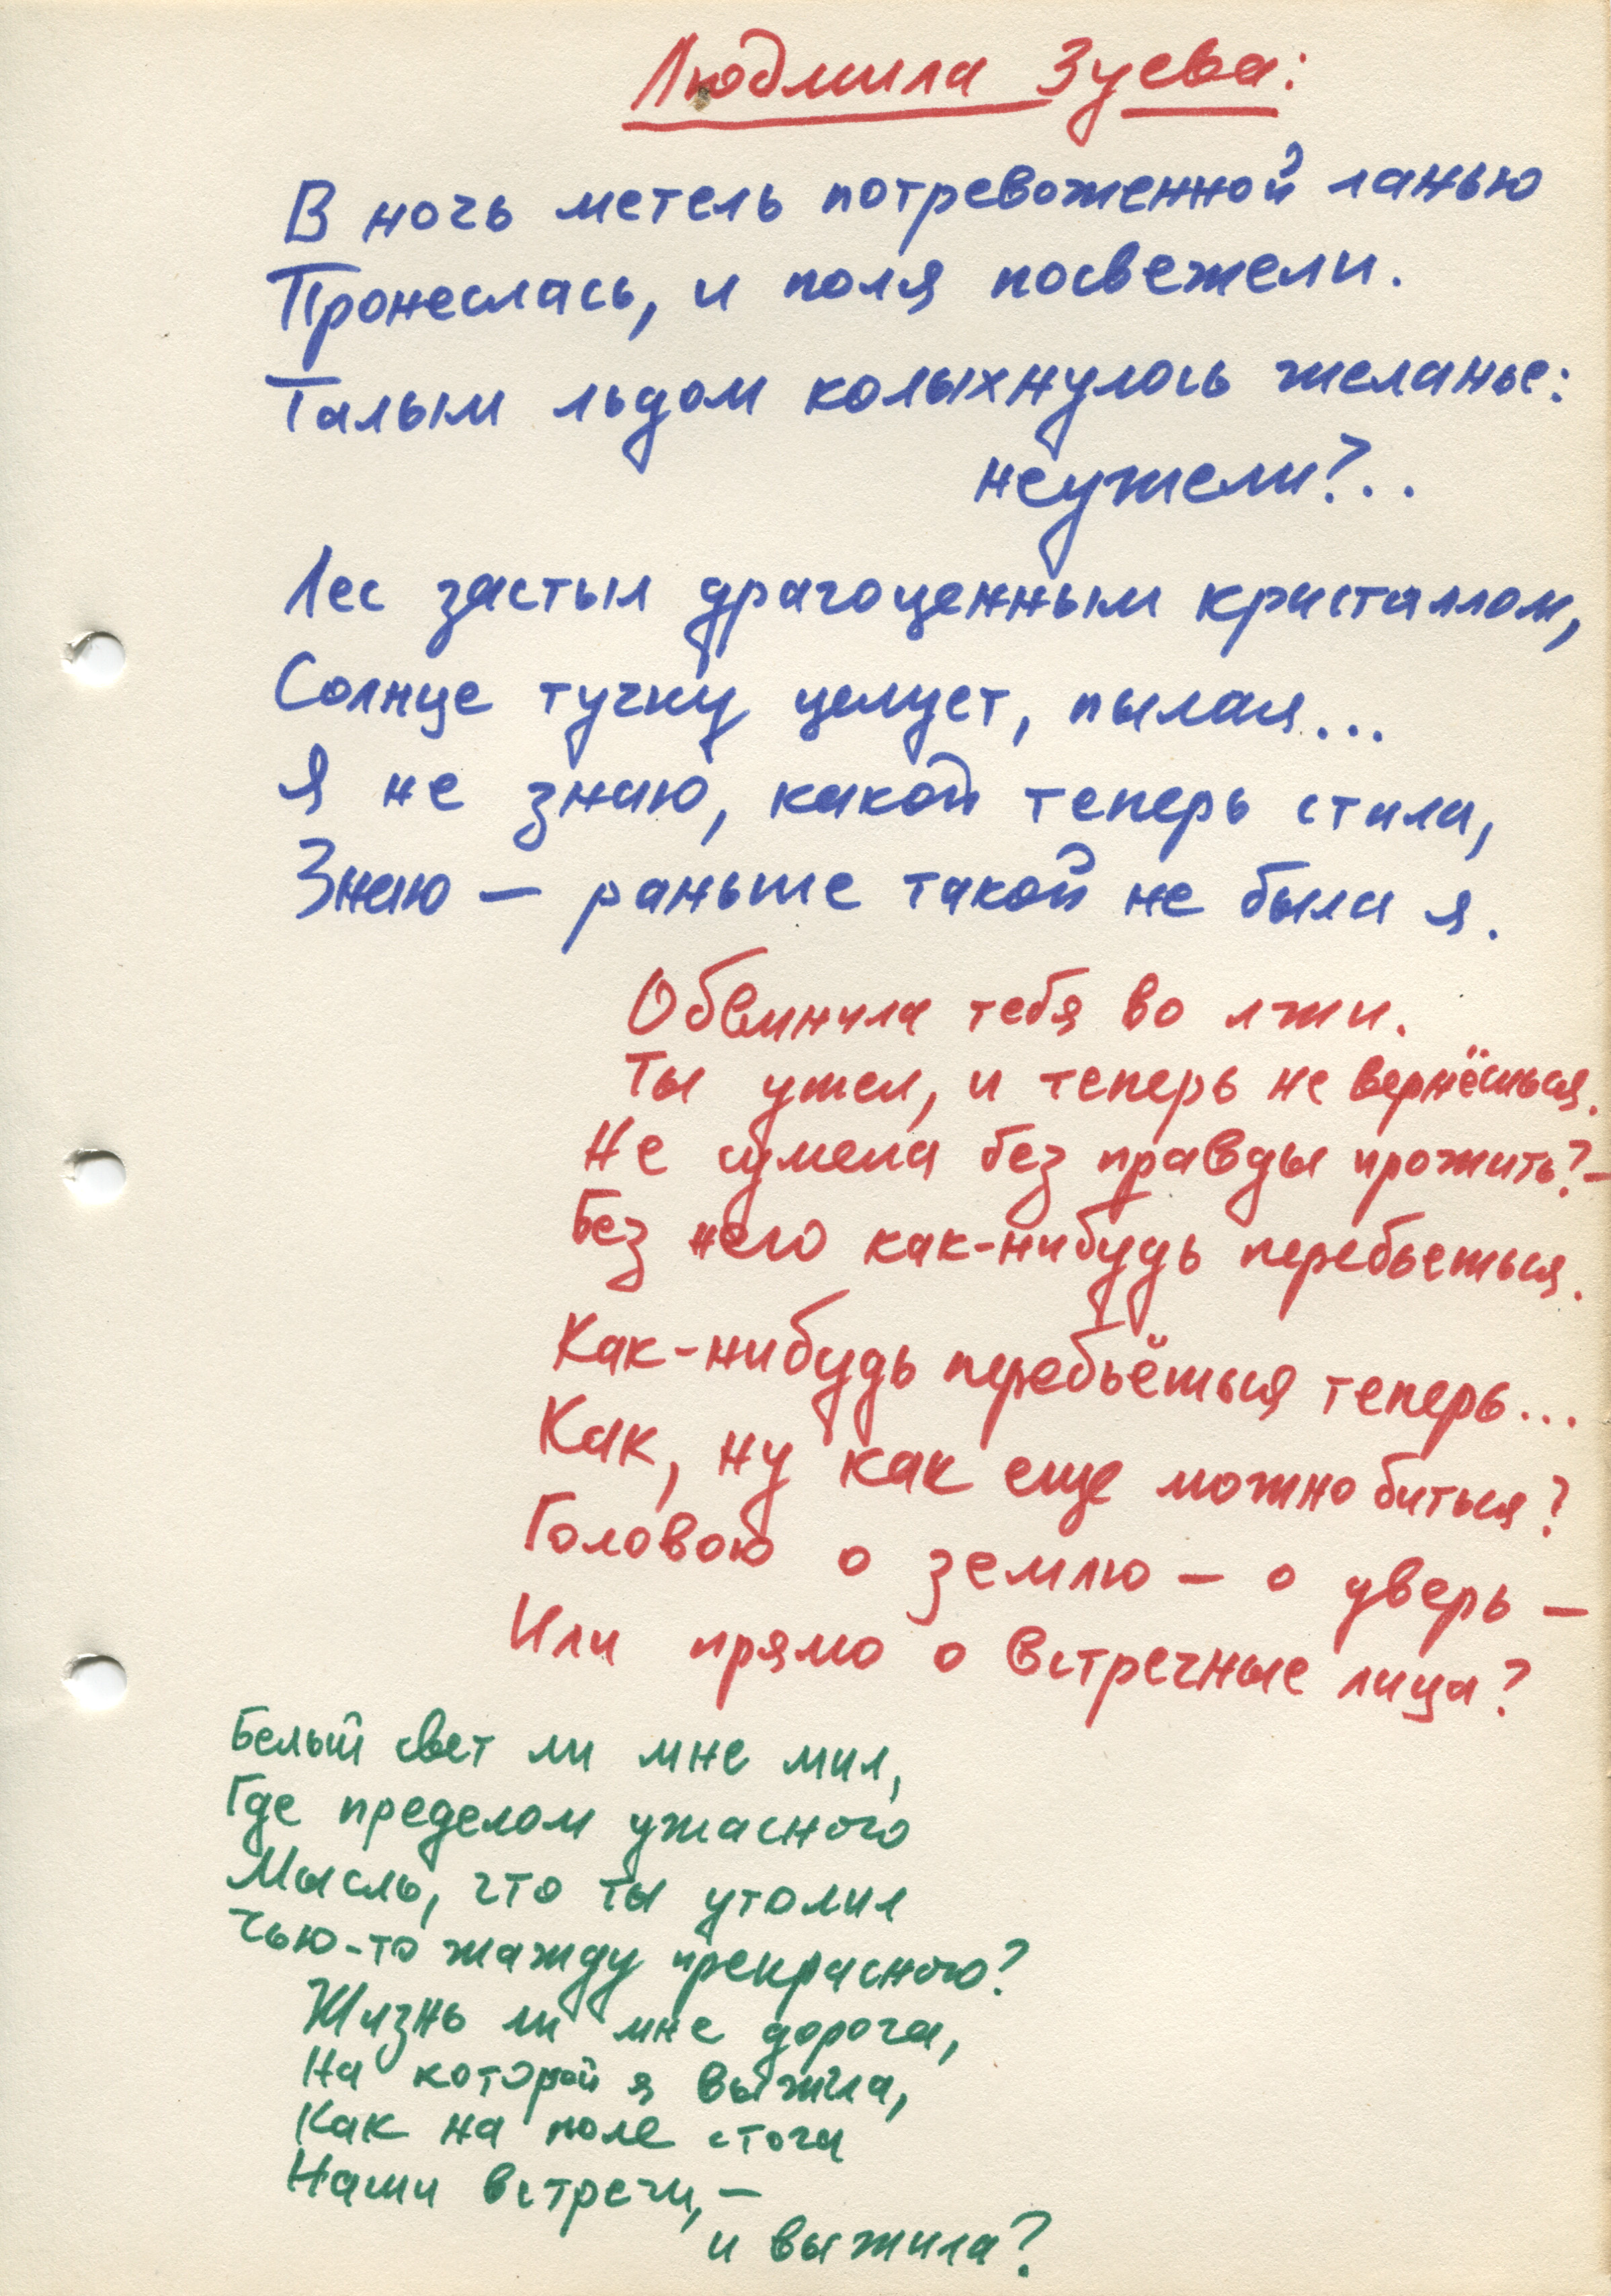 Людмила Зуева:
В ночь метель потревоженной ланью
Пронеслась, и поля посвежели.
Талым льдом колыхнулось желанье:
неужели?..
Лес застыл драгоценным кристаллом,
Солнце тучку целует, пылая...
Я не знаю, какой теперь стала,
Знаю – раньше такой не была я.
Обвинила тебя во лжи.
Ты ушел, и теперь не вернёшься.
Не сумела без правды прожить? –
Без него как-нибудь перебьешься.
Как-нибудь перебьёшься теперь...
Как, ну как еще можно биться?
Головою о землю – о дверь –
Или прямо о встречные лица?
Белый свет ли мне мил,
Где пределом ужасного
Мысль, что ты утолил
Чью-то жажду прекрасного?
Жизнь ли мне дорога,
На которой я выжгла,
Как на поле стога
Наши встречи, –
и выжила?